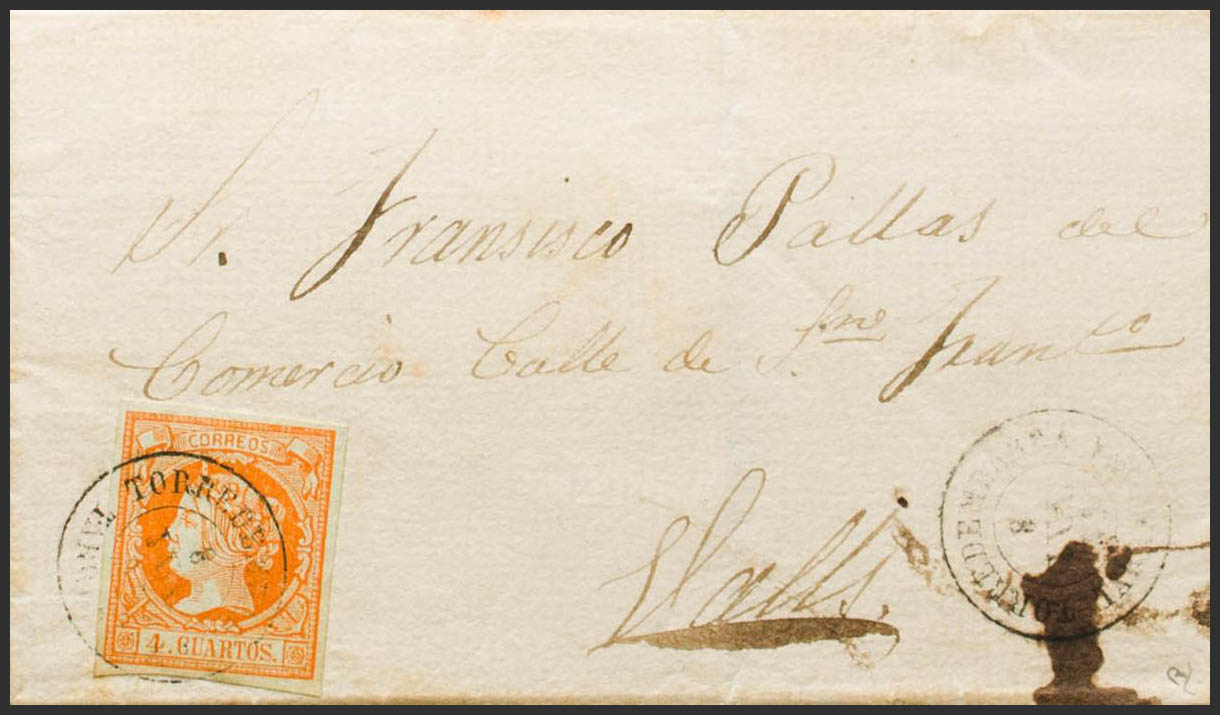 Sr. Fransisco Pallas del
Comercio Calle de Sn. Franco
Valls.
CORREOS
4. CUARTOS.
TORREDEMBARRA
TORREDEMBARRA
8